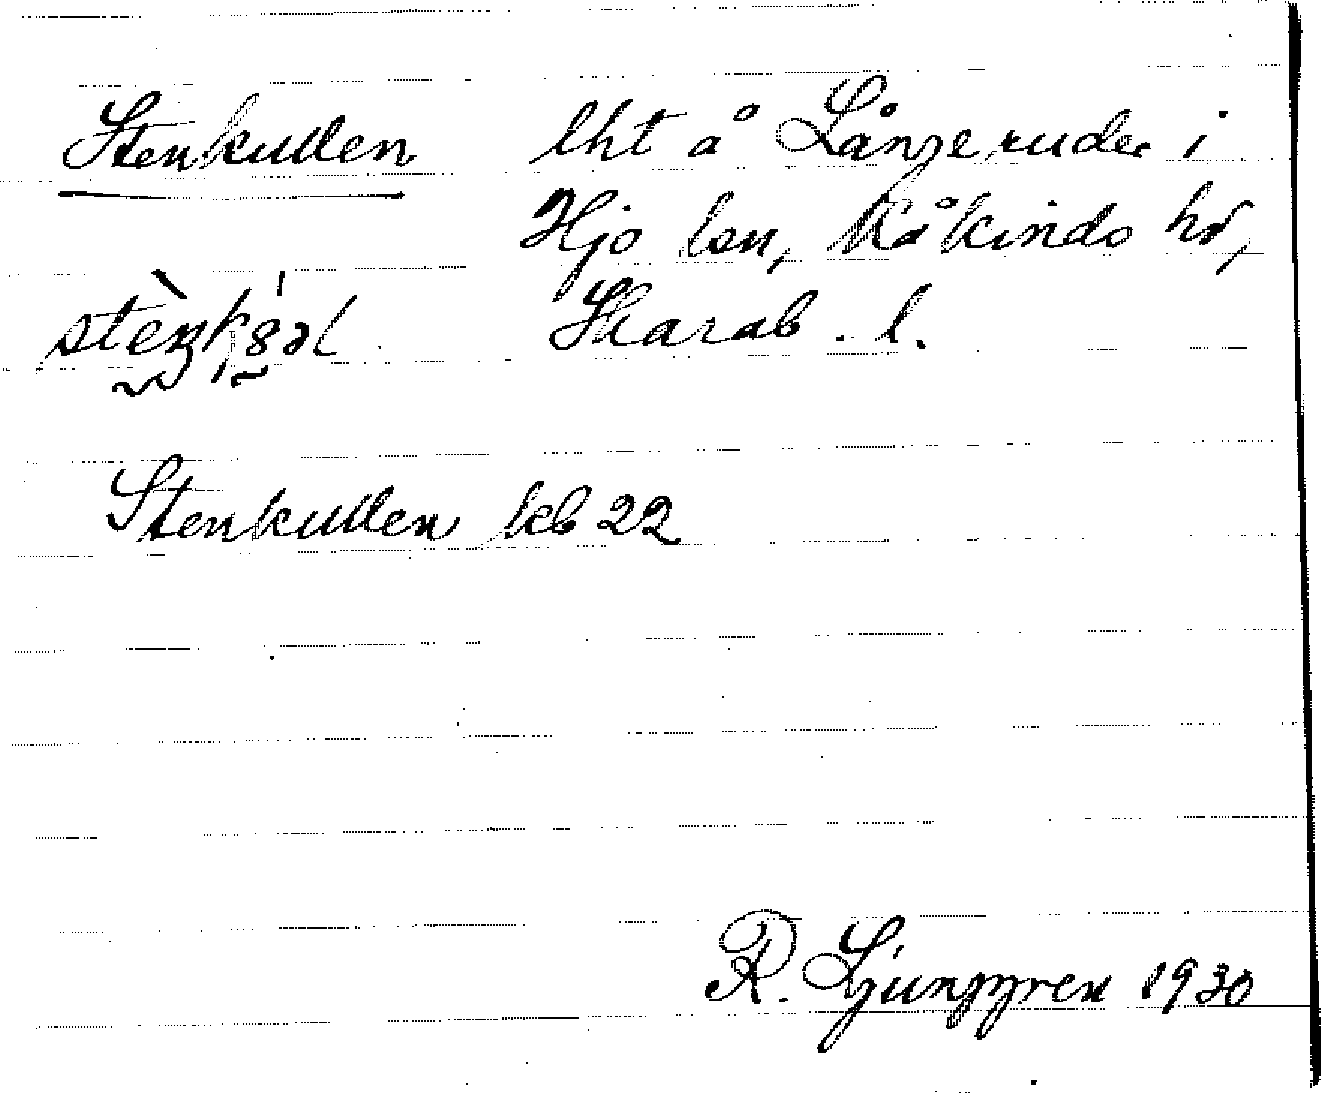 Stenkullen lht å Långeruder i
Hjo lsn, Kåkinds hd,
Skarab. l.
Stenkullen kb 22
R. Ljunggren 1930